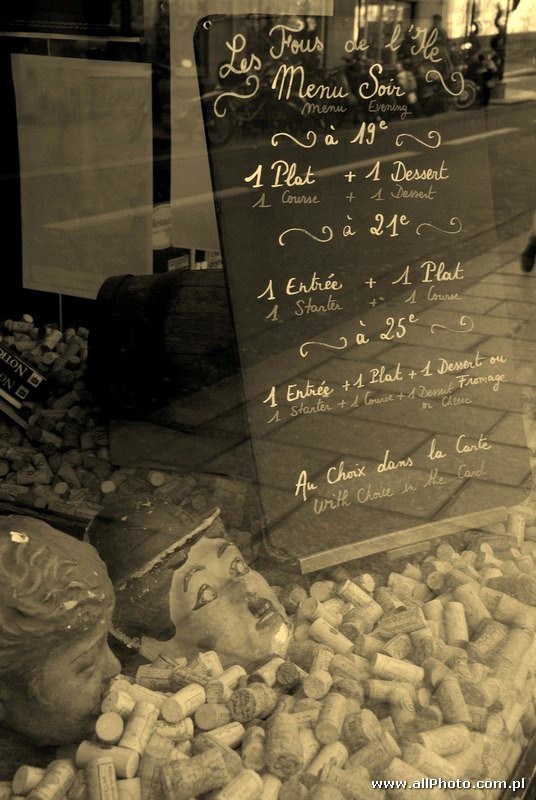 Les Fous de l'Ile
Menu Soir
Menu Evening
à 19e
1 Plat + 1 Dessert
1 Course + 1 Dessert
à 21e
1 Entrée + 1 Plat
1 Starter + 1 Course
à 25e
1 Entrée + 1 Plat + 1 Dessert ou
Fromage
1 Starter + 1 Course + 1 Dessert
or Cheese
Au Choix dans la Carte
With Choice in the Card
www.allPhoto.com.pl